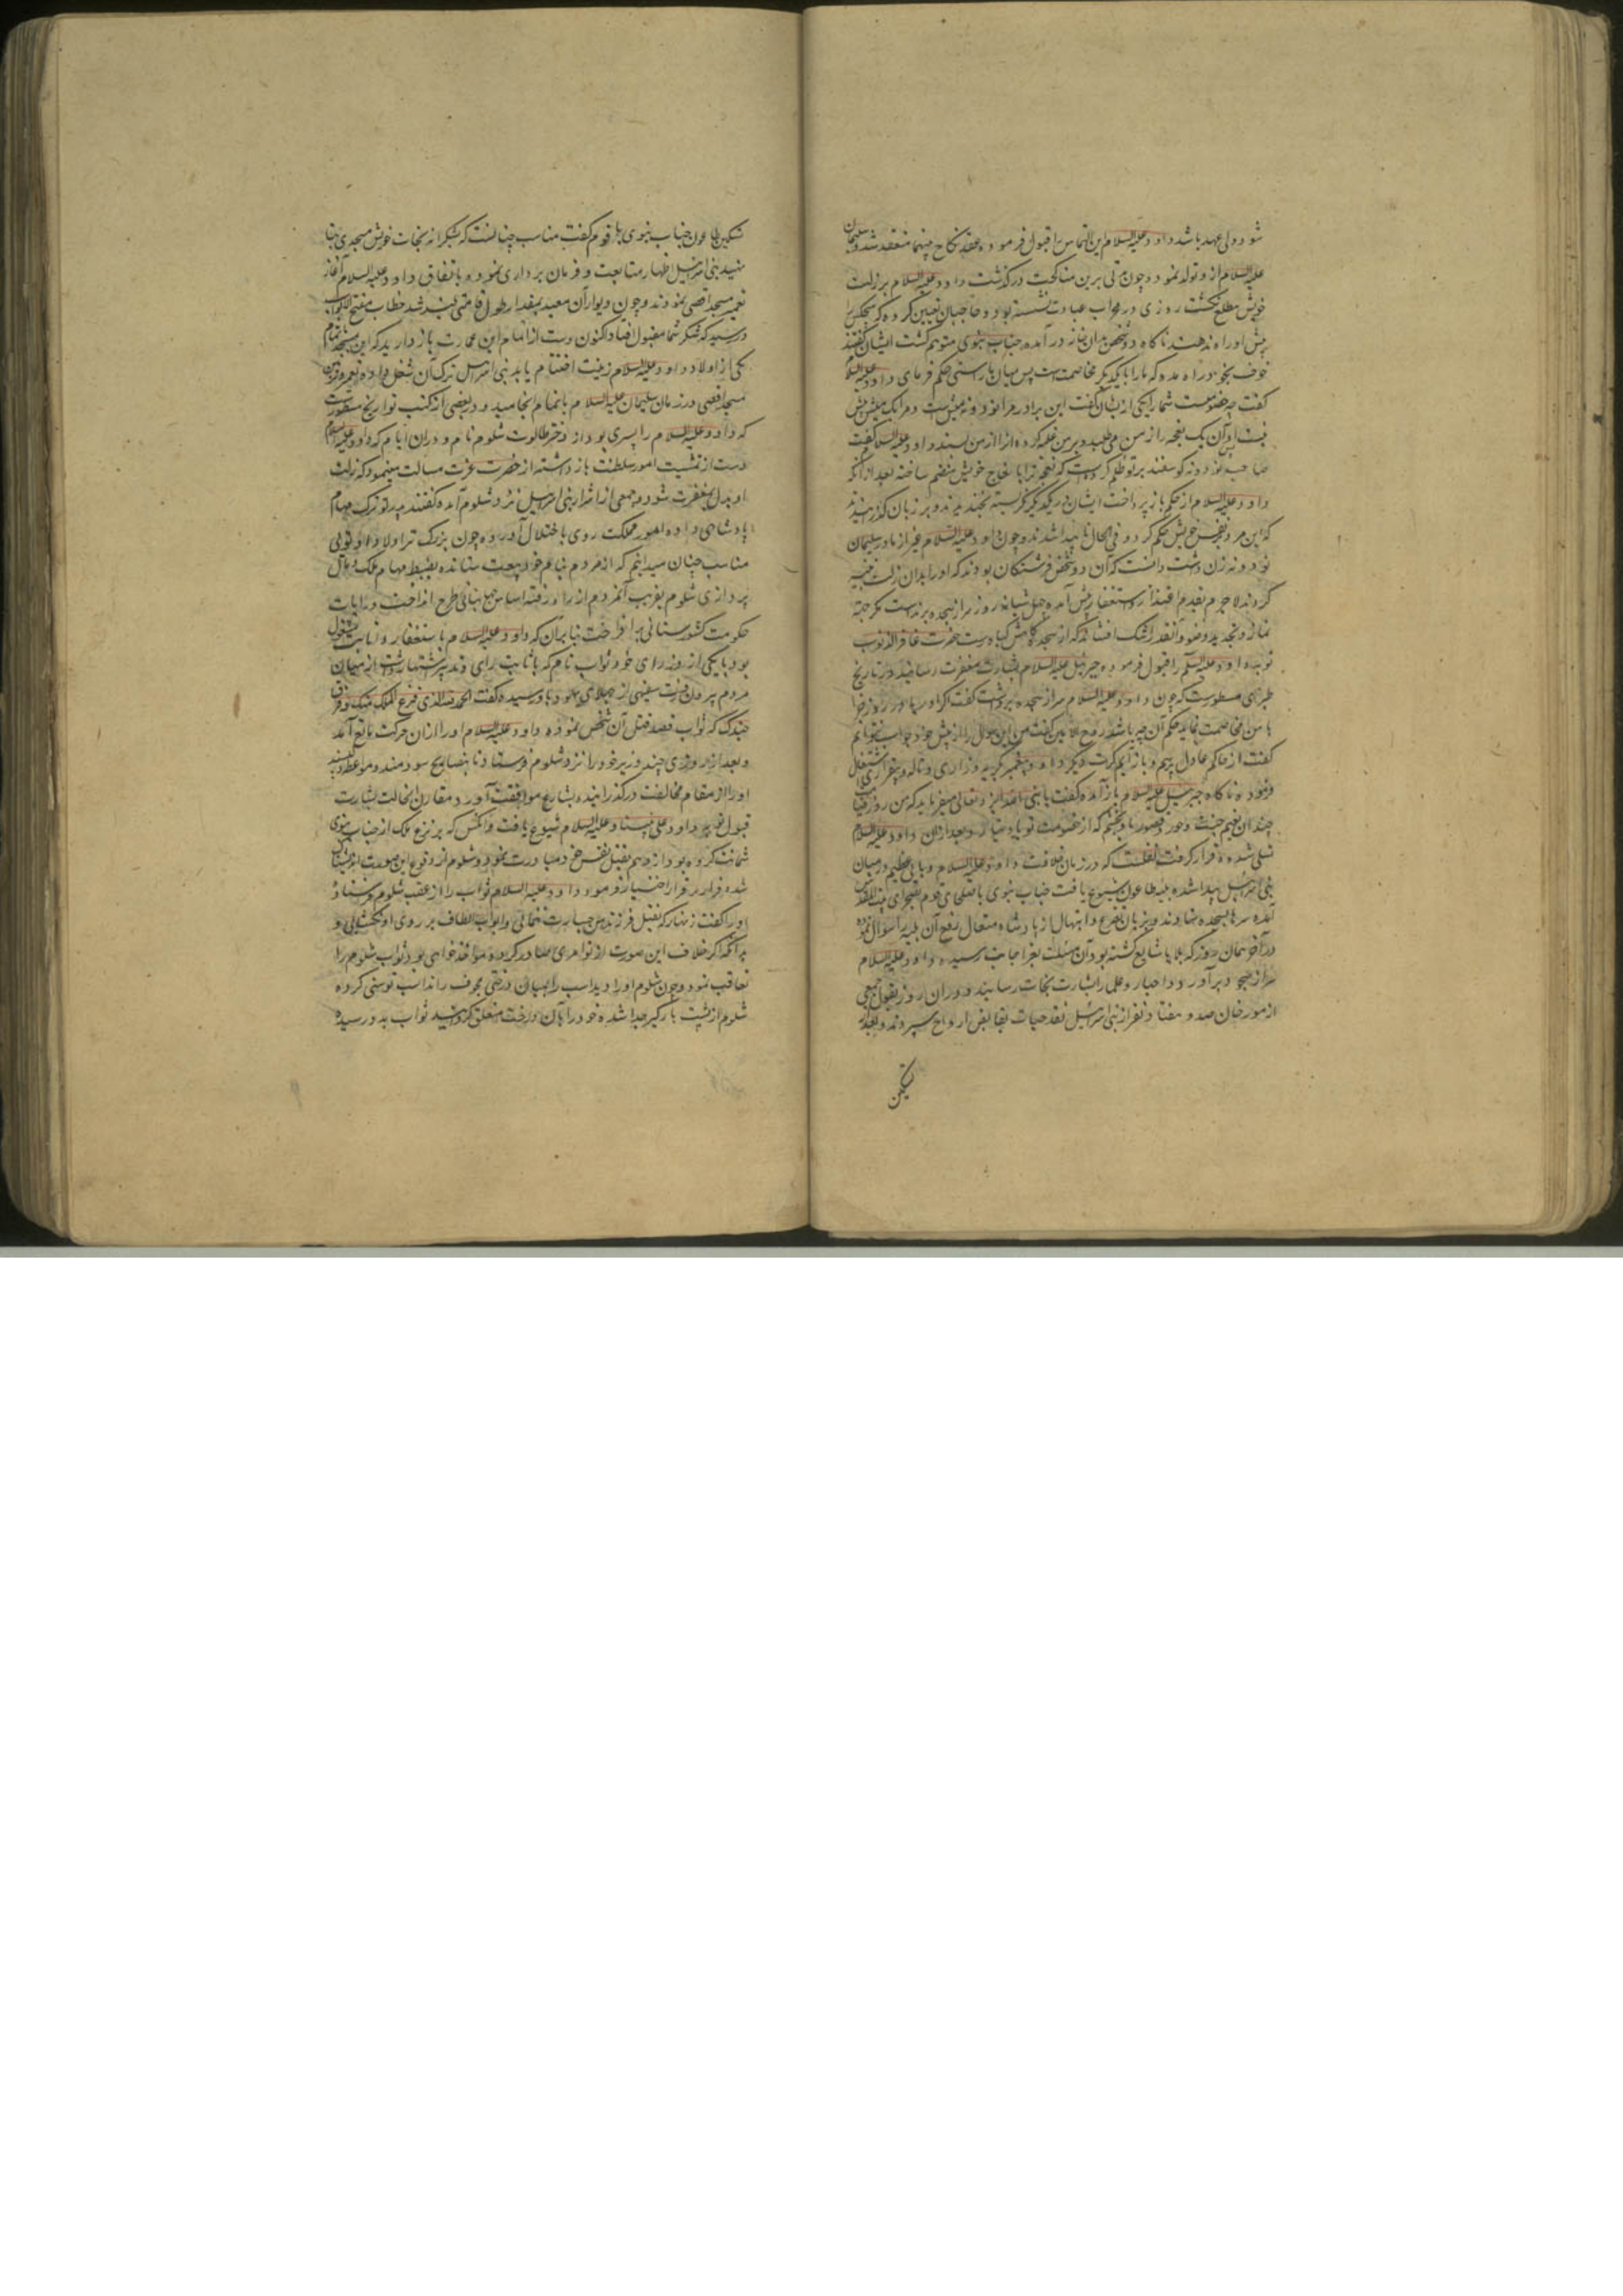 شود ولی عهد باشد داود علیه السلام این التماس را قبول فرموده عقد نکاح بینهما منعقد شد و سلیمان
علیه السلام از و تولد نمود و چون مدتی برین مناکحت درگذشت داود علیه السلام بر زلت
خویش مطلع گشت روزی در محراب عبادت نشسته بود و حاجبان تعیین کرده که هیچکس را
پیش او راه ندهند ناگاه دو شخص بدان خانه درآمده جناب نبوی متوهم گشت ایشان گفتند
خوف بخود راه مده که ما را با یکدیگر مخاصمت است پس میان ما براستی حکم فرمای داود علیه السلام
گفت چه خصومت شما را یکی از یشان گفت این برادر مرا نود و نه میش است و مرا یک میش بیش
نیست او آن یک نعجه را از من می طلبد و بر من غلبه کرده آنرا از من بستد داود علیه السلام گفت
صاحب نود و نه گوسفند بر تو ظلم کردست که نعجه ترا با نعاج خویش منضم ساخته بعد از آنکه
داود علیه السلام از حکم باز پرداخت ایشان در یکدیگر نگریسته بخندیدند و بر زبان گذرانیدند
که این مرد بر نفس خویش حکم کرد و فی الحال ناپیدا شدند و چون داود علیه السلام غیر از مادر سلیمان
نود و نه زن داشت دانست که آن دو شخص فرشتگان بودند که او را بدان زلت تنبیه
کردند لاجرم بقدم اعتذار و استغفار پیش آمده چهل شبانه روز سر از سجده برنداشت مگر جهة
نماز و تجدید وضو و آنقدر اشک افشاند که از سجده گاهش گیاه رست حضرت غافر الذنوب
توبه داود علیه السلام را قبول فرموده جبرئیل علیه السلام بشارت مغفرت رسانید در تاریخ
طبری مسطورست که چون داود علیه السلام سر از سجده برداشت گفت اگر اوریا در روز جزا
با من مخاصمت نماید حکم آن چه باشد روح الامین گفت من این سوال را از پیش خود جواب نتوانم
گفت از حاکم عادل پرسم و باز آیم کرت دیگر داود پیغمبر بگریه و زاری و ناله و بیقراری اشتغال
فرموده ناگاه جبرئیل علیه السلام باز آمده گفت یا نبی الله ایزد تعالی میفرماید که من روز قیامت
چندان نعیم جنت و حور و قصور باو بخشم که از خصومت تو یاد نیارد و بعد از آن داود علیه السلام
تسلی شده قرار گرفت نقلست که در زمان خلافت داود علیه السلام وبایی عظیم در میان
بنی اسرائیل پیدا شده بلیه طاعون شیوع یافت جناب نبوی با صلحای قوم بصحرای بیت المقدس
آمده سرها بسجده نهادند و بزبان تضرع و ابتهال از پادشاه متعال رفع آن بلیه را سوال نموده
در آخر همان روز که بلا شایع گشته بود آن مسئلت بعز اجابت رسیده داود علیه السلام
سر از سجود برآورد و احبار و علما را بشارت نجات رسانید و در آن روز بقول جمعی
از مورخان صد و هفتاد نفر از بنی اسرائیل نقد حیات بقابض ارواح سپردند و بعد از
تسکین
تسکین طاعون جناب نبوی با قوم گفت مناسب چنانست که بشکرانه نجات خویش مسجدی بنا
نهید بنی اسرائیل اظهار متابعت و فرمان برداری نموده باتفاق داود علیه السلام آغاز
تعمیر مسجد اقصی نمودند و چون دیوار آن معبد بمقدار طول قامتی بلند شد خطاب مفتح الابواب
در رسید که شکر شما مقبول افتاد اکنون دست از اتمام این عمارت باز دارید که این مسجد بنام
یکی از اولاد داود علیه السلام زینت اختتام یابد بنی اسرائیل ترک آن شغل داده تعمیر و تزیین
مسجد اقصی در زمان سلیمان علیه السلام باتمام انجامید و در بعضی از کتب تواریخ مسطورست
که داود علیه السلام را پسری بود از دختر طالوت شلوم نام و در آن ایام که داود علیه السلام
دست از تمشیت امور سلطنت باز داشته از حضرت عزت مسالت مینمود که زلت
او بدل بمغفرت شود جمعی از اشرار بنی اسرائیل نزد شلوم آمده گفتند پدر تو ترک مهام
پادشاهی داده امور مملکت روی باختلال آورده چون بزرگ تر اولاد او تویی
مناسب چنان میدانیم که از مردم بنام خود بیعت ستانده بضبط مهام ملک و مال
پردازی شلوم بفریب آنمردم از راه رفته اساس جهانبانی طرح انداخت و رایات
حکومت کشورستانی برافراخت بنابر آن که داود علیه السلام باستغفار و انابت مشغول
بود با یکی از وزرای خود ثواب نام که باثابت رای و تدبیر اشتهار داشت از میان
مردم بیرون رفت سفیهی از جهلای یهود باو رسیده گفت الحمد لله الذی نزع الملک منک و فرق
جندک ثواب قصد قتل آن شخص نموده داود علیه السلام او را از آن حرکت مانع آمد
و بعد از روزی چند وزیر خود را نزد شلوم فرستاد تا بنصایح سودمند و مواعظ دلپسند
او را از مقام مخالفت درگذرانیده بشارع موافقت آورد و مقارن آنحالت بشارت
قبول توبه داود علی نبینا و علیه السلام شیوع یافت و آنکس که بر نزع ملک از جناب نبوی
شماتت کرده بود از وهم بقتل نفس خود مبادرت نمود و شلوم از وقوع این صورت اندیشناک
شده فرار بر قرار اختیار فرمود داود علیه السلام ثواب را از عقب شلوم فرستاد و
او را گفت زنهار که بقتل فرزند من جسارت ننمائی و ابواب الطاف بر روی او بگشایی و
چه اگر خلاف این صورت از تو امری صادر گردد مواخذ خواهی بود ثواب شلوم را
تعاقب نمود و چون شلوم او را دید اسب را بمیان درختی مجوف راند اسب توسنی کرده
شلوم از پشت بارگیر جدا شده خود را بآن درخت متعلق گردانید ثواب بدو رسیده